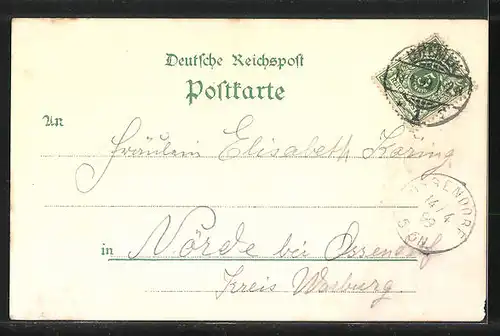 Deutsche Reichspost
Postkarte
An
Fräulein Elisabeth Koring
in Nörde bei Ossendorf
Kreis Warburg
OSSENDORF
14/4